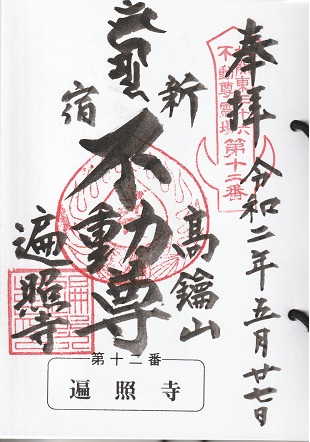 奉拝
令和二年五月廿七日
関東三十六
不動尊霊場
第十二番
新宿
不動尊
高鑰山
遍照寺
第十二番
遍照寺